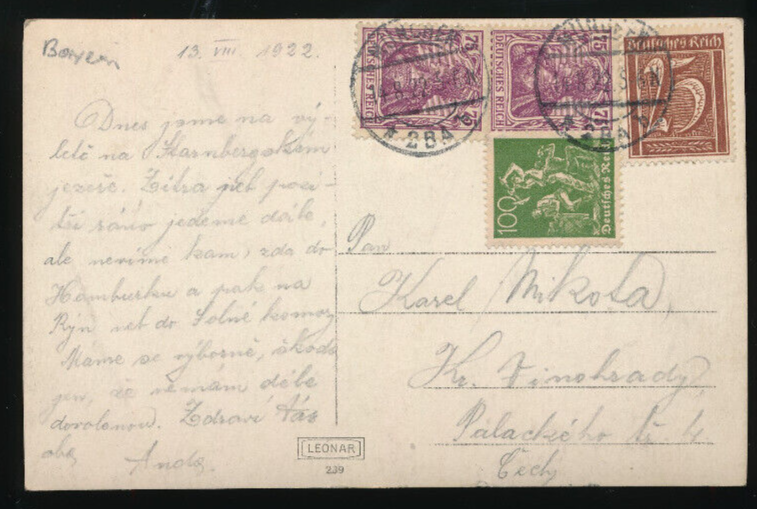 Bayern
13. VIII. 1922.
Dnes jsme na vý-
letě na Starnbergském
jezeře. Zítra neb pozí-
tří ráno jedeme dále,
ale nevíme kam, zda do
Hamburku a pak na
Rýn neb do Solné komory
Máme se výborně, škoda
jen, že nemám déle
dovolenou. Zdraví Vás
oba
75 75
DEUTSCHES REICH
75 75
DEUTSCHES REICH
Deutsches Reich
25
MÜNCHEN
* 2BA *
100
Deutsches Reich
Pan
Karel Mikota,
Kr. Vinohrady,
Palackého tř. 4
Čechy
LEONAR
239